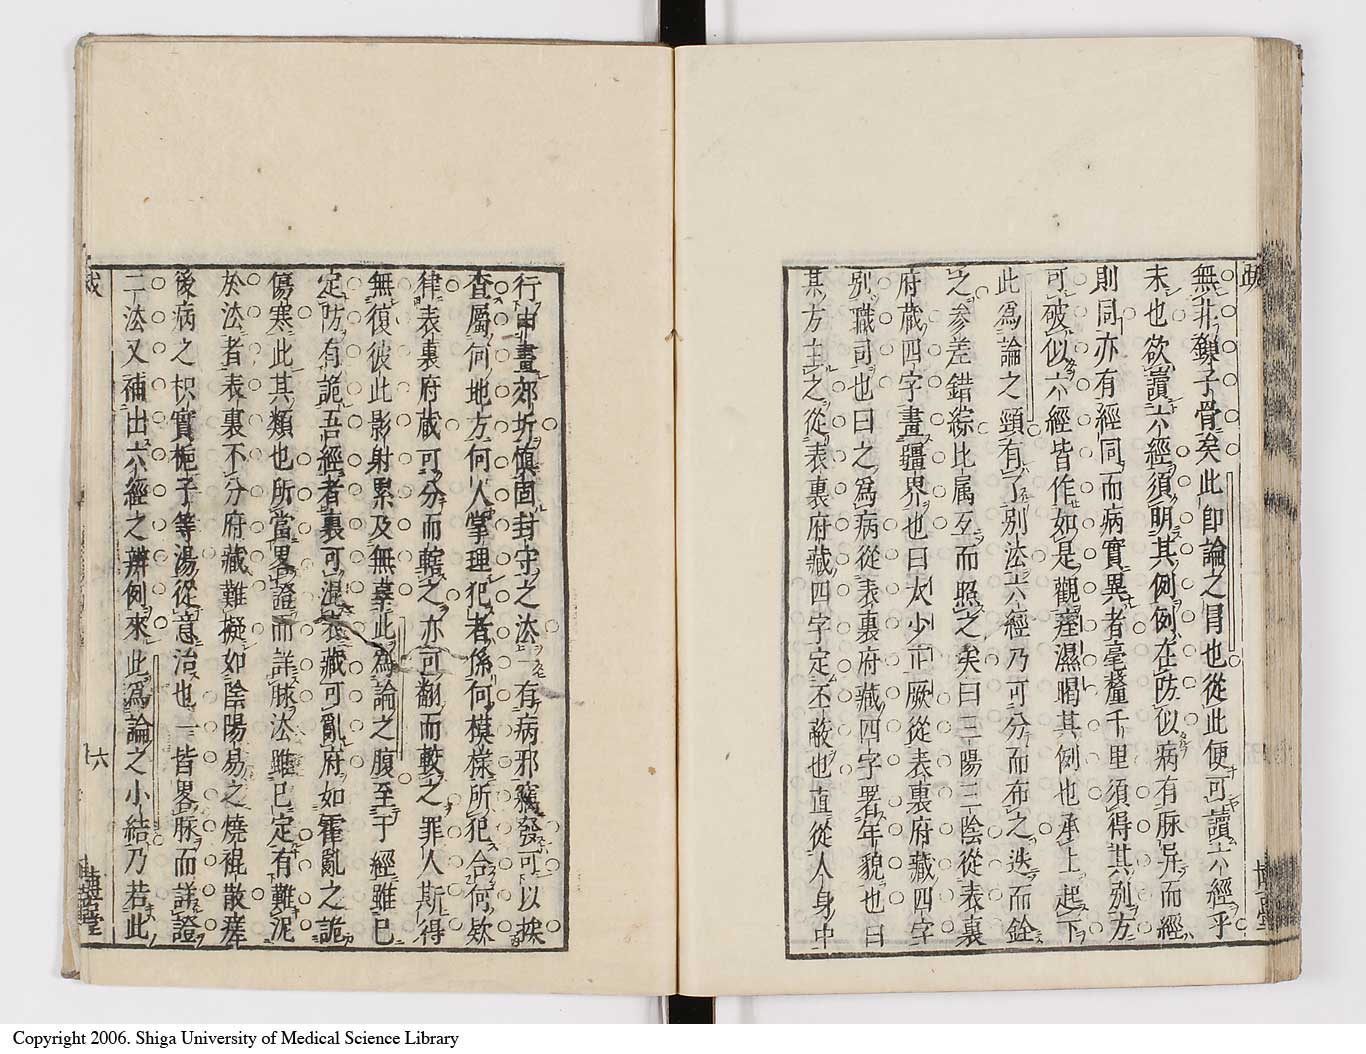 無非鎳子骨矣此卽論之冐也從此便可讀六經乎
未也欲讀六經須明其例例在防似病有脉异而經
則同亦有經同而病實異者毫釐千里須得其別方
可破似六經皆作如是觀痙濕暍其例也承上起下
此爲論之頸有了別法六經乃可分而布之迭而銓
之參差錯綜比属互而照之矣曰三陽三陰從表裏
府藏四字畫疆界也曰太少正厥從表裏府藏四字
別職司也曰之爲病從表裏府藏四字署年貌也曰
某方主之從表裏府藏四字定丕蔽也直從人身中
行由畫郊圻愼固封守之法一有病邪竊發可以挨
查屬何地方何人掌理犯者係何模樣所犯合何欵
律表裏府藏可分而轄之亦可翻而較之罪人斯得
無復彼此影射累及無辜此爲論之腹至于經雖已
定防有詭吾經者裏可混表藏可亂府如霍亂之詭
傷寒此其類也所當畧證而詳脉法雖已定有難泥
於法者表裏不分府藏難擬如陰陽易之燒裩散瘥
後病之枳實梔子等湯從意治也一皆畧脉而詳證
二法又補出六經之辨例來此爲論之小結乃若此
六
Copyright 2006. Shiga University of Medical Science Library